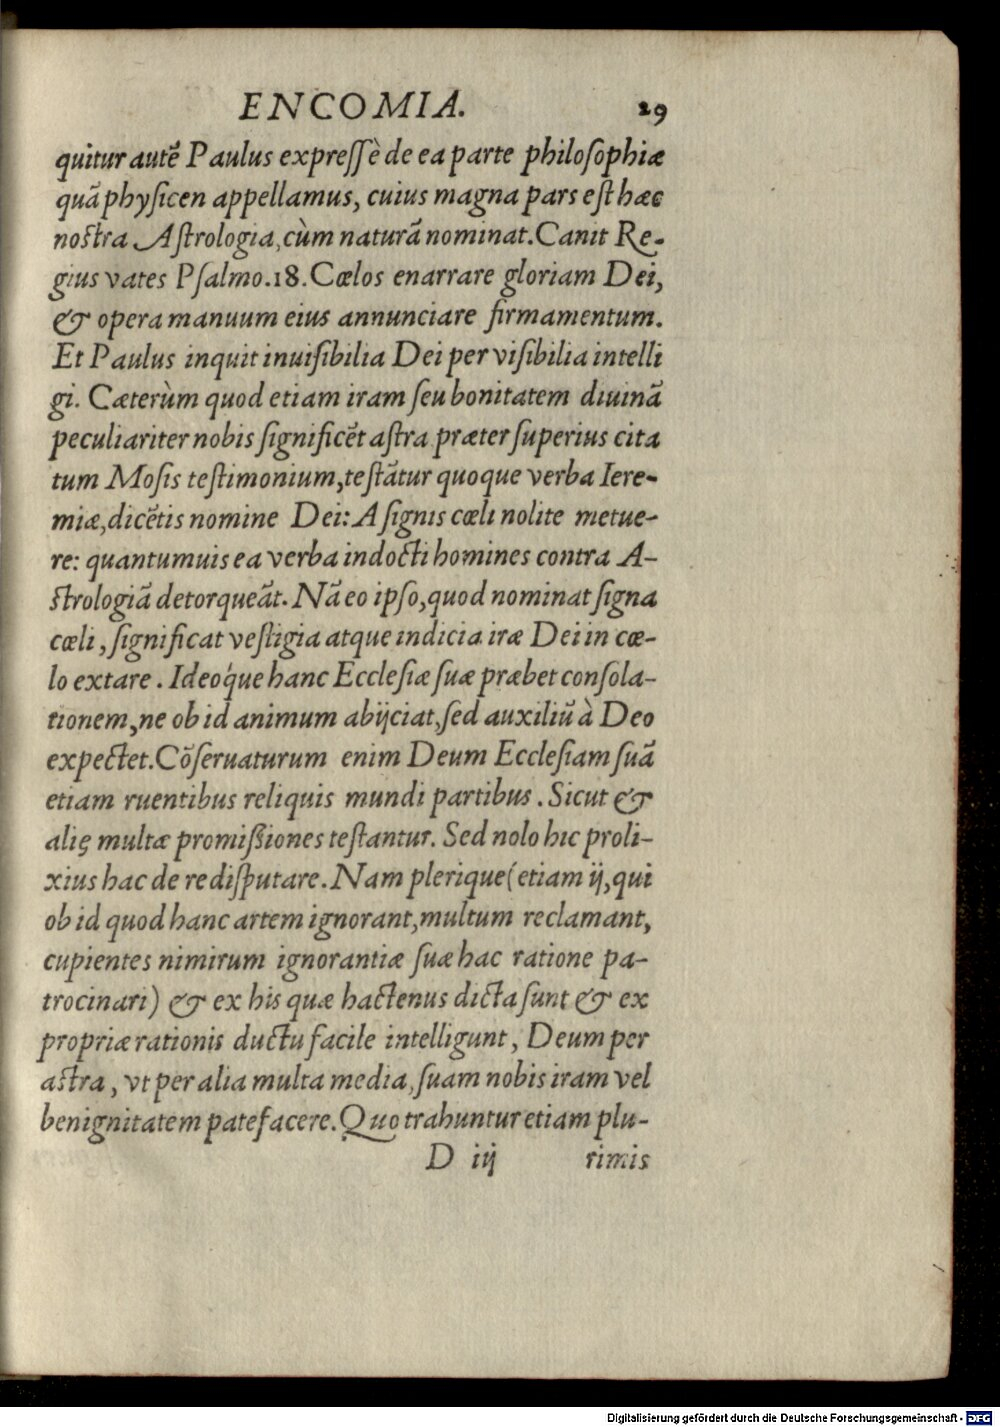 ENCOMIA. 29
quitur autẽ Paulus expreſſè de ea parte philoſophiæ
quã phyſicen appellamus, cuius magna pars eſt hæc
noſtra Aſtrologia, cùm naturã nominat. Canit Re-
gius vates Pſalmo. 18. Cœlos enarrare gloriam Dei,
& opera manuum eius annunciare firmamentum.
Et Paulus inquit inuiſibilia Dei per viſibilia intelli
gi. Cæterùm quod etiam iram ſeu bonitatem diuinã
peculiariter nobis ſignificẽt aſtra præter ſuperius cita
tum Moſis teſtimonium, teſtãtur quoque verba Iere-
miæ, dicẽtis nomine Dei: A ſignis cœli nolite metue-
re: quantumuis ea verba indocti homines contra A-
ſtrologiã detorqueãt. Nã eo ipſo, quod nominat ſigna
cœli, ſignificat veſtigia atque indicia iræ Dei in cœ-
lo extare. Ideóque hanc Eccleſiæ ſuæ præbet conſola-
tionem, ne ob id animum abijciat, ſed auxiliũ à Deo
expectet. Cõſeruaturum enim Deum Eccleſiam ſuã
etiam ruentibus reliquis mundi partibus. Sicut &
alię multæ promißiones teſtantur. Sed nolo hic proli-
xius hac de re diſputare. Nam plerique (etiam ij, qui
ob id quod hanc artem ignorant, multum reclamant,
cupientes nimirum ignorantiæ ſuæ hac ratione pa-
trocinari) & ex his quæ hactenus dicta ſunt & ex
propriæ rationis ductu facile intelligunt, Deum per
aſtra, vt per alia multa media, ſuam nobis iram vel
benignitatem patefacere. Quo trahuntur etiam plu-
D iij rimis
Digitalisierung gefördert durch die Deutsche Forschungsgemeinschaft - DFG